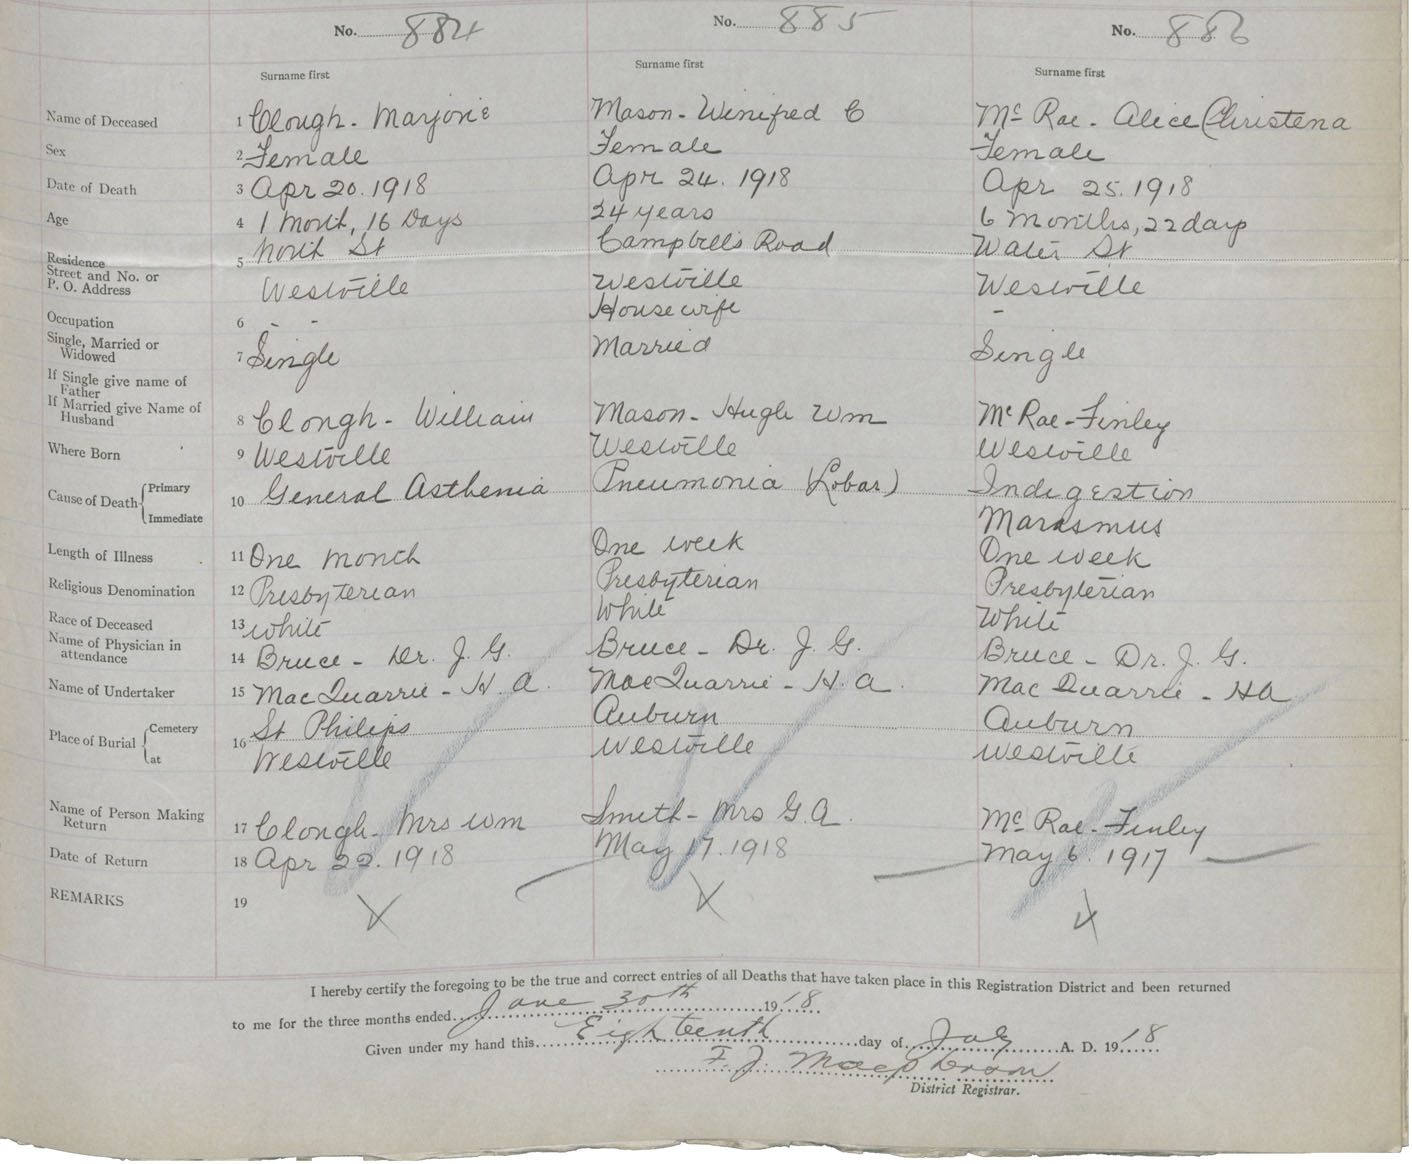 No. 884 No. 885 No. 886
Surname first Surname first Surname first
Name of Deceased 1 Clough - Marjorie Mason - Winifred C Mc Rae - Alice Christena
Sex 2 Female Female Female
Date of Death 3 Apr 20. 1918 Apr 24. 1918 Apr 25. 1918
Age 4 1 Month, 16 Days 24 years 6 Months, 22 days
Residence 5 North St Campbells Road Water St
Street and No. or
P. O. Address Westville Westville Westville
Occupation 6 - - Housewife -
Single, Married or
Widowed 7 Single Married Single
If Single give name of
Father
If Married give Name of
Husband 8 Clough - William Mason - Hugh Wm Mc Rae - Finley
Where Born 9 Westville Westville Westville
Cause of Death { Primary 10 General Asthenia Pneumonia (Lobar) Indigestion
Immediate Marasmus
Length of Illness 11 One month One week One week
Religious Denomination 12 Presbyterian Presbyterian Presbyterian
Race of Deceased 13 White White White
Name of Physician in
attendance 14 Bruce - Dr. J. G. Bruce - Dr. J. G. Bruce - Dr. J. G.
Name of Undertaker 15 MacQuarrie - H. A. MacQuarrie - H. A. MacQuarrie - HA
Place of Burial { Cemetery 16 St Philips Auburn Auburn
at Westville Westville Westville
Name of Person Making
Return 17 Clough - Mrs Wm Smith - Mrs G. A. Mc Rae - Finley
Date of Return 18 Apr 22. 1918 May 17. 1918 May 6. 1917
REMARKS 19
I hereby certify the foregoing to be the true and correct entries of all Deaths that have taken place in this Registration District and been returned
to me for the three months ended June 30th 1918
Given under my hand this Eighteenth day of July A. D. 1918
F. J. Macpherson
District Registrar.